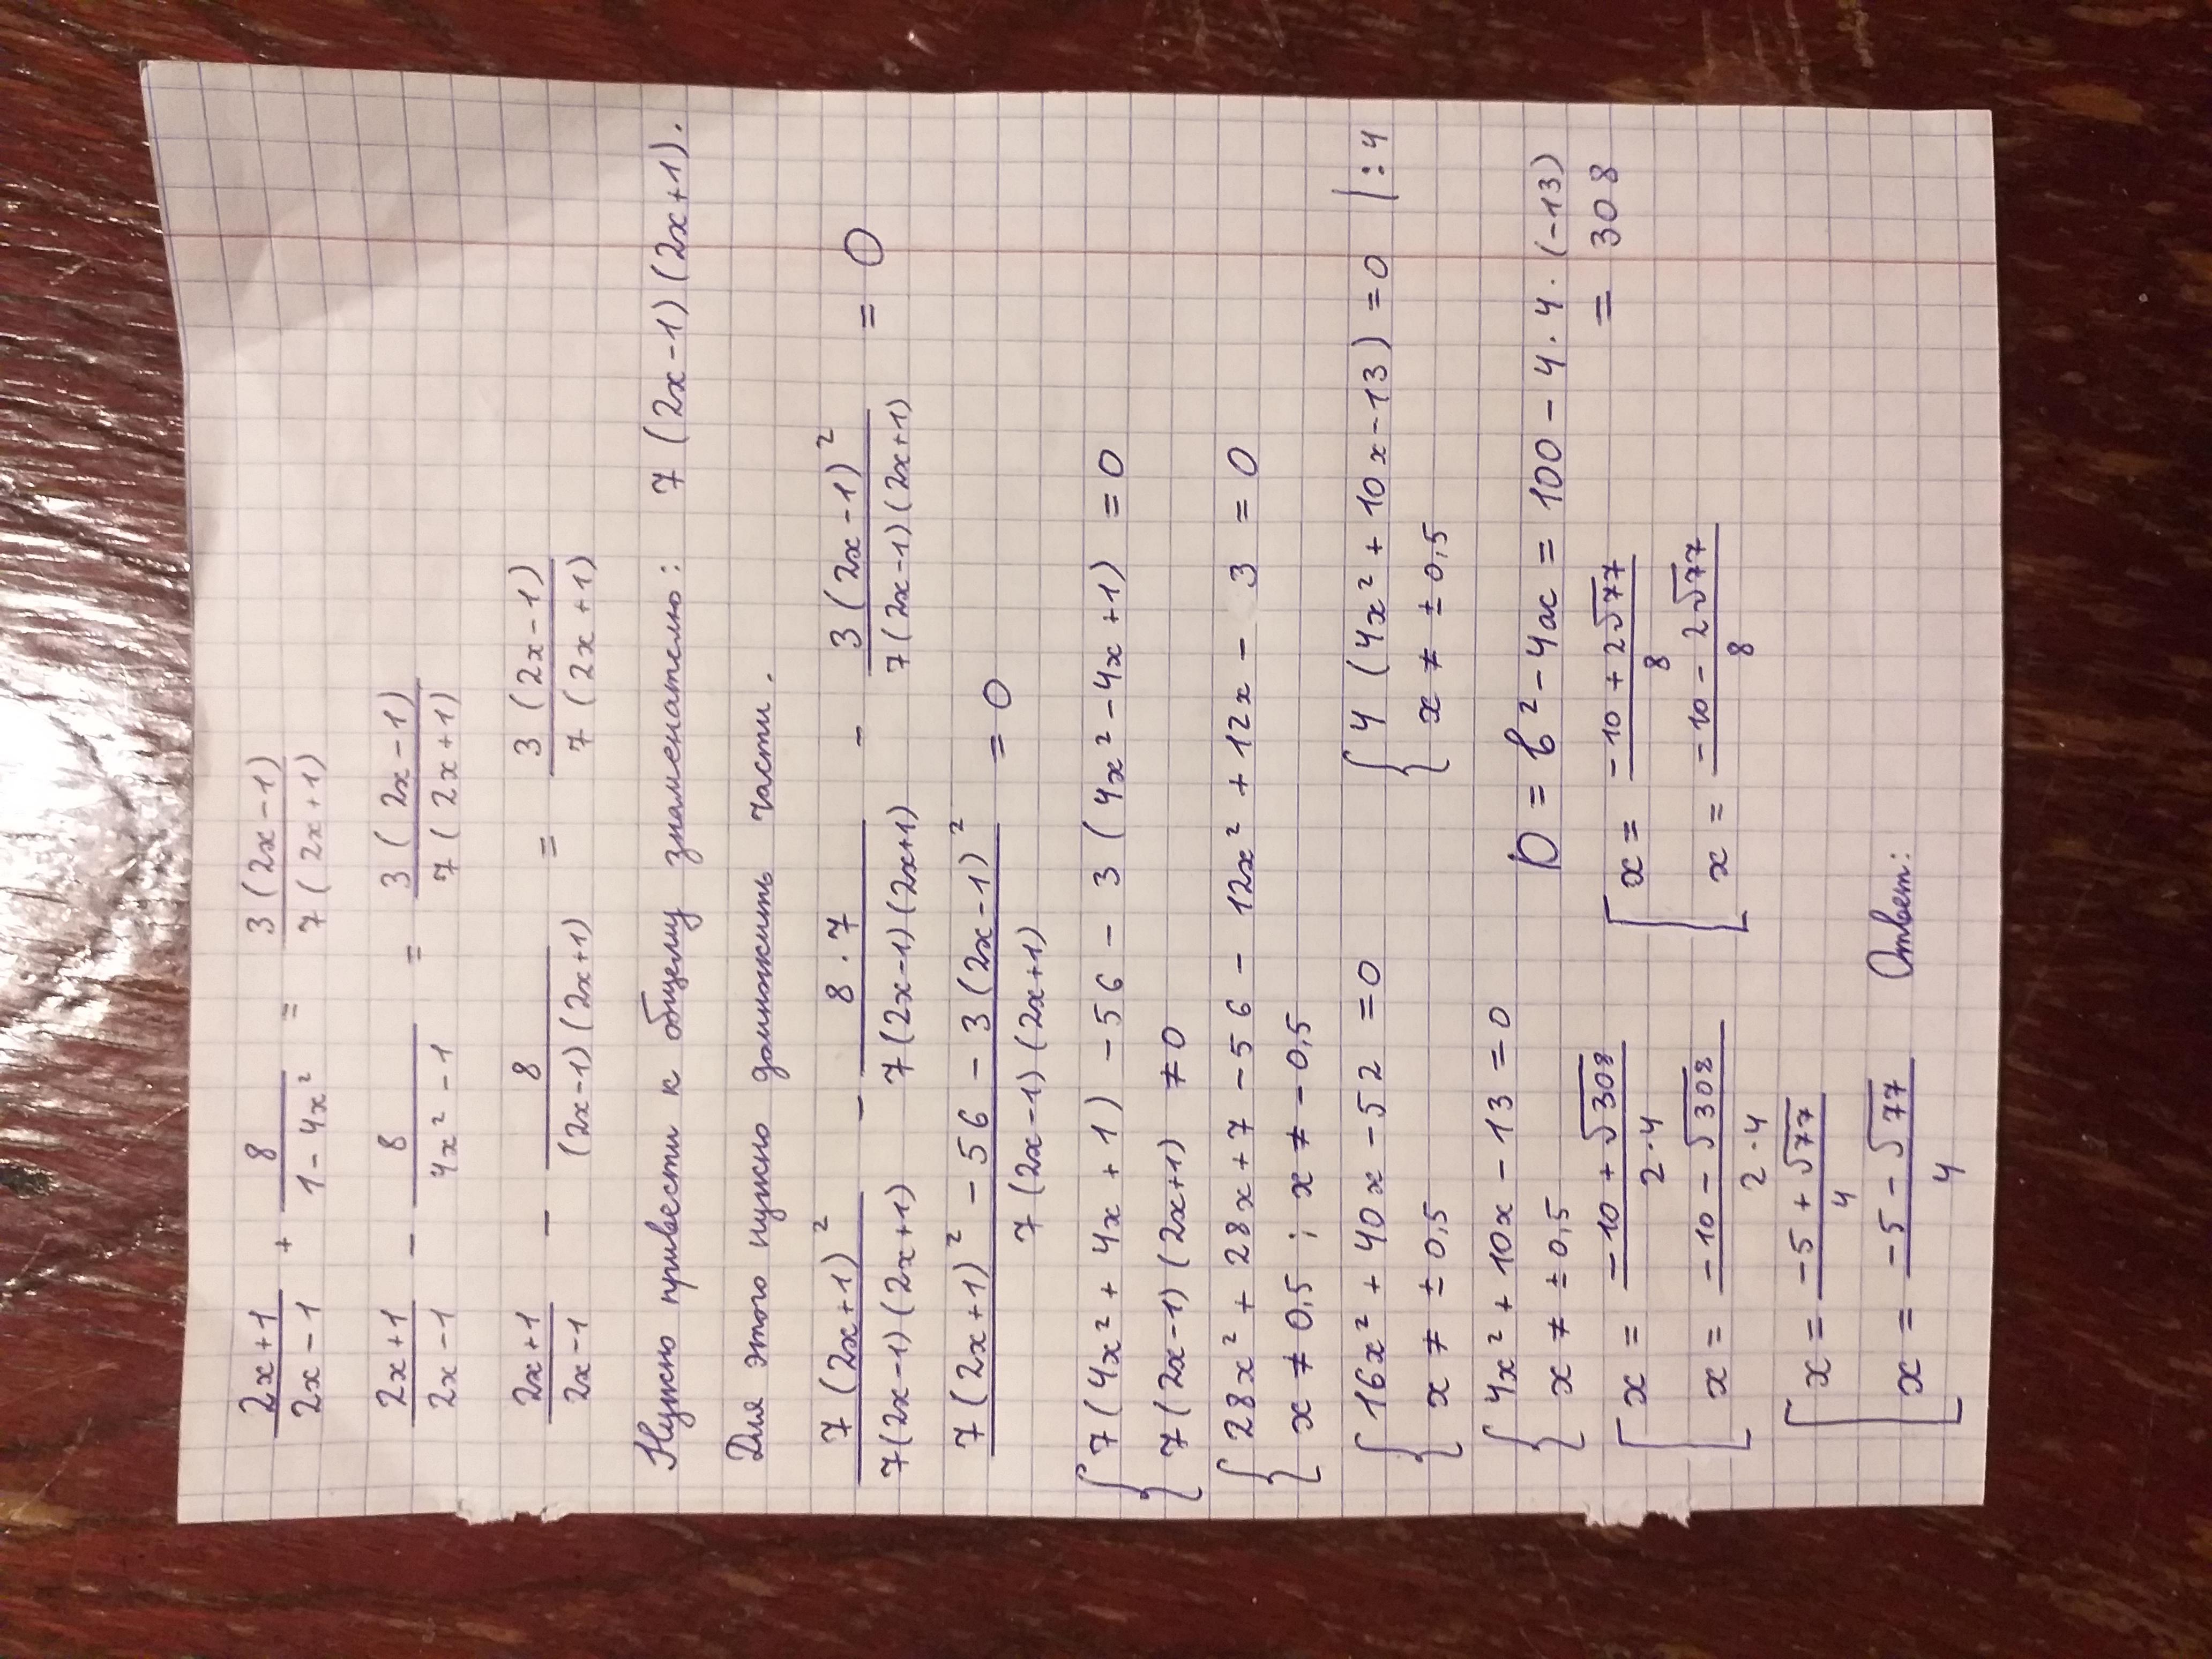 (2x+1)/(2x-1) + 8/(1-4x²) = 3(2x-1)/(7(2x+1))
(2x+1)/(2x-1) - 8/(4x²-1) = 3(2x-1)/(7(2x+1))
(2x+1)/(2x-1) - 8/((2x-1)(2x+1)) = 3(2x-1)/(7(2x+1))
Нужно привести к общему знаменателю: 7(2x-1)(2x+1).
Для этого нужно домножить части.
7(2x+1)²/(7(2x-1)(2x+1)) - 8·7/(7(2x-1)(2x+1)) - 3(2x-1)²/(7(2x-1)(2x+1)) = 0
(7(2x+1)² - 56 - 3(2x-1)²)/(7(2x-1)(2x+1)) = 0
{ 7(4x² + 4x + 1) - 56 - 3(4x² - 4x + 1) = 0
7(2x-1)(2x+1) ≠ 0
{ 28x² + 28x + 7 - 56 - 12x² + 12x - 3 = 0
x ≠ 0,5 ; x ≠ -0,5
{ 16x² + 40x - 52 = 0 { 4(4x² + 10x - 13) = 0 | : 4
x ≠ ± 0,5 x ≠ ± 0,5
{ 4x² + 10x - 13 = 0 D = b² - 4ac = 100 - 4·4·(-13)
x ≠ ± 0,5 = 308
[ x = (-10 + √308)/(2·4) [ x = (-10 + 2√77)/8
x = (-10 - √308)/(2·4) x = (-10 - 2√77)/8
[ x = (-5 + √77)/4
x = (-5 - √77)/4 Ответ: